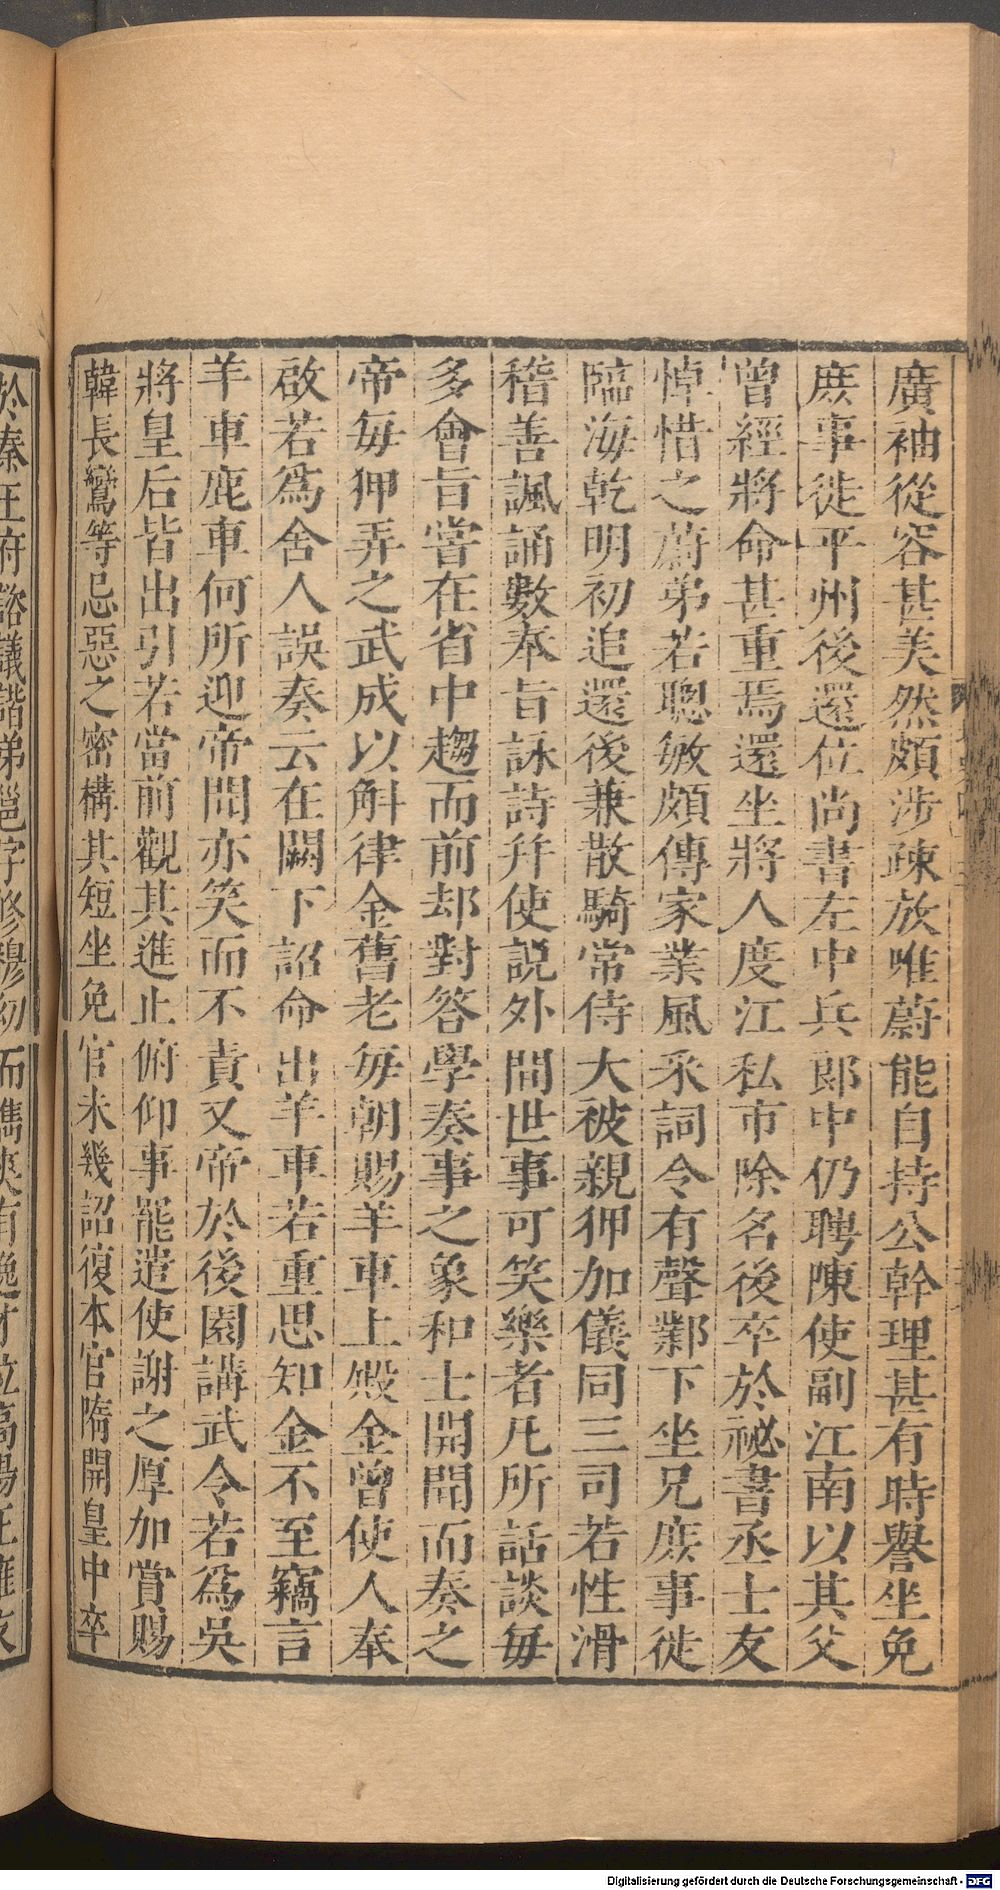 廣袖從容甚美然頗涉疎放唯蔚能自持公幹理甚有時譽坐免
庶事徙平州後還位尚書左中兵郎中仍聘陳使副江南以其父
曾經將命甚重焉還坐將人度江私市除名後卒於祕書丞士友
悼惜之蔚弟若聰敏頗傳家業風采詞令有聲鄴下坐兄庶事徙
臨海乾明初追還後兼散騎常侍大被親狎加儀同三司若性滑
稽善諷誦數奉旨詠詩幷使說外間世事可笑樂者凡所話談每
多會旨嘗在省中趨而前却對答學奏事之象和士開聞而奏之
帝每狎弄之武成以斛律金舊老每朝賜羊車上殿金曾使人奉
啟若爲舍人誤奏云在闕下詔命出羊車若重思知金不至竊言
羊車鹿車何所迎帝聞亦笑而不責又帝於後園講武令若爲吳
將皇后皆出引若當前觀其進止俯仰事罷遣使謝之厚加賞賜
韓長鸞等忌惡之密構其短坐免官未幾詔復本官隋開皇中卒
於秦王府諮議諧弟邕字修穆幼而儁爽有逸才位高陽王雍友
Digitalisierung gefördert durch die Deutsche Forschungsgemeinschaft - DFG